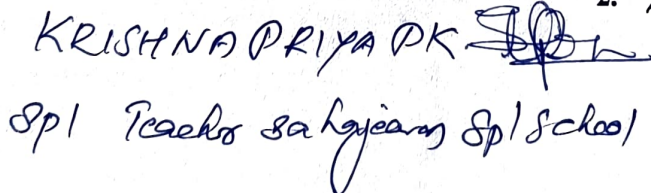 KRISHNA PRIYA PK
Spl Teacher Sahajeevan Spl School